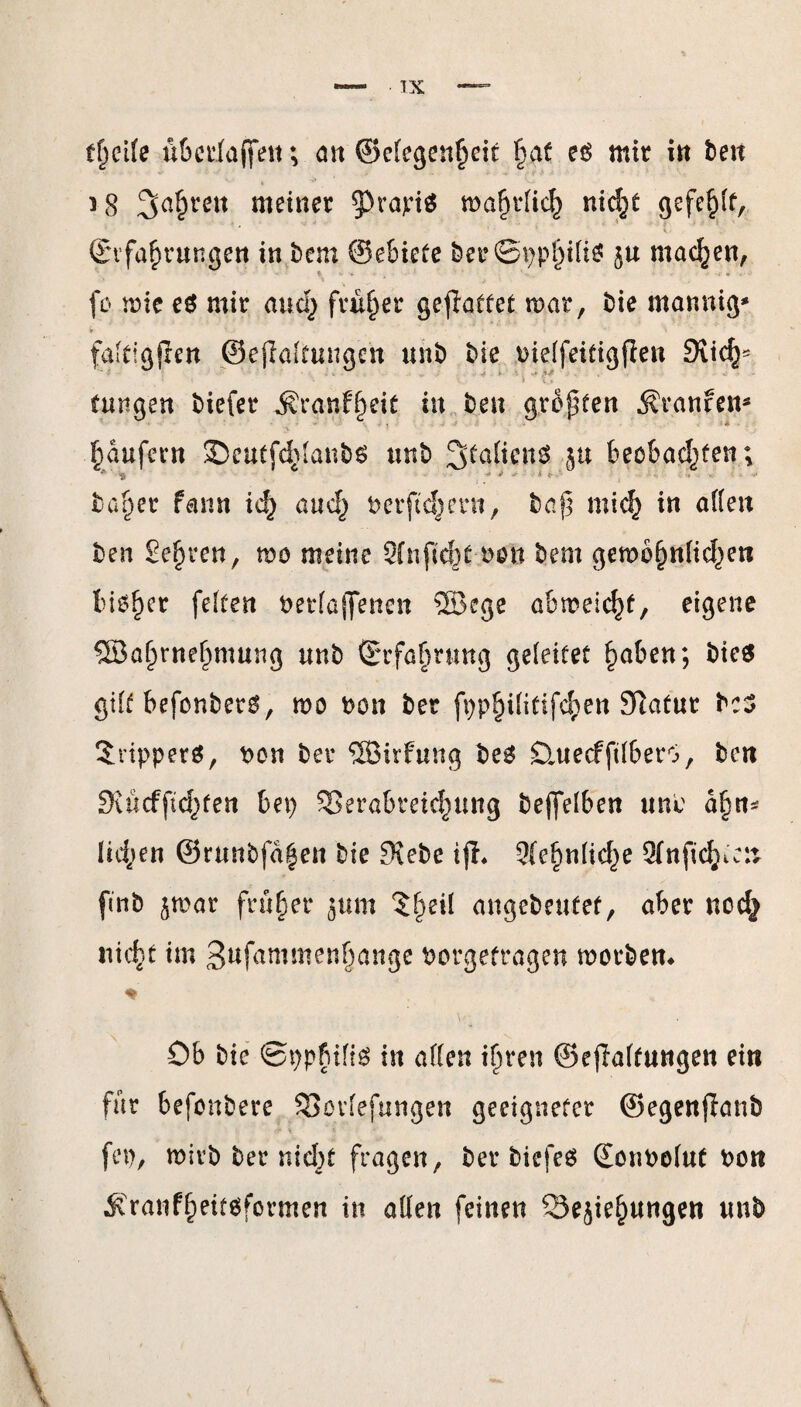 — IX —
theile überlassen; an Gelegenheit hat es mir in den
18 Jahren meiner Praxis wahrlich nicht gefehlt,
Erfahrungen in dem Gebiete der Syphilis zu machen,
so wie es mir auch früher gestattet war, die mannig-
faltigsten Gestaltungen und die vielseitigsten Rich-
tungen dieser Krankheit in den größten Kranken-
häusern Deutschlands und Italiens zu beobachten;
daher kann ich auch versichern, daß mich in allen
den Lehren, wo meine Ansicht von dem gewöhnlichen
bisher selten verlassenen Wege abweicht, eigene
Wahrnehmung und Erfahrung geleitet haben; dies
gilt besonders, wo von der syphilitischen Natur des
Trippers, von der Wirkung des Quecksilbers, den
Rücksichten bey Verabreichung desselben und ähn-
lichen Grundsätzen die Rede ist. Aehnliche Ansichten
sind zwar früher zum Theil angedeutet, aber noch
nicht im Zusammenhange vorgetragen worden.
Ob die Syphilis in allen ihren Gestaltungen ein
für besondere Vorlesungen geeigneter Gegenstand
sey, wird der nicht fragen, der dieses Convolut von
Krankheitsformen in allen seinen Beziehungen und